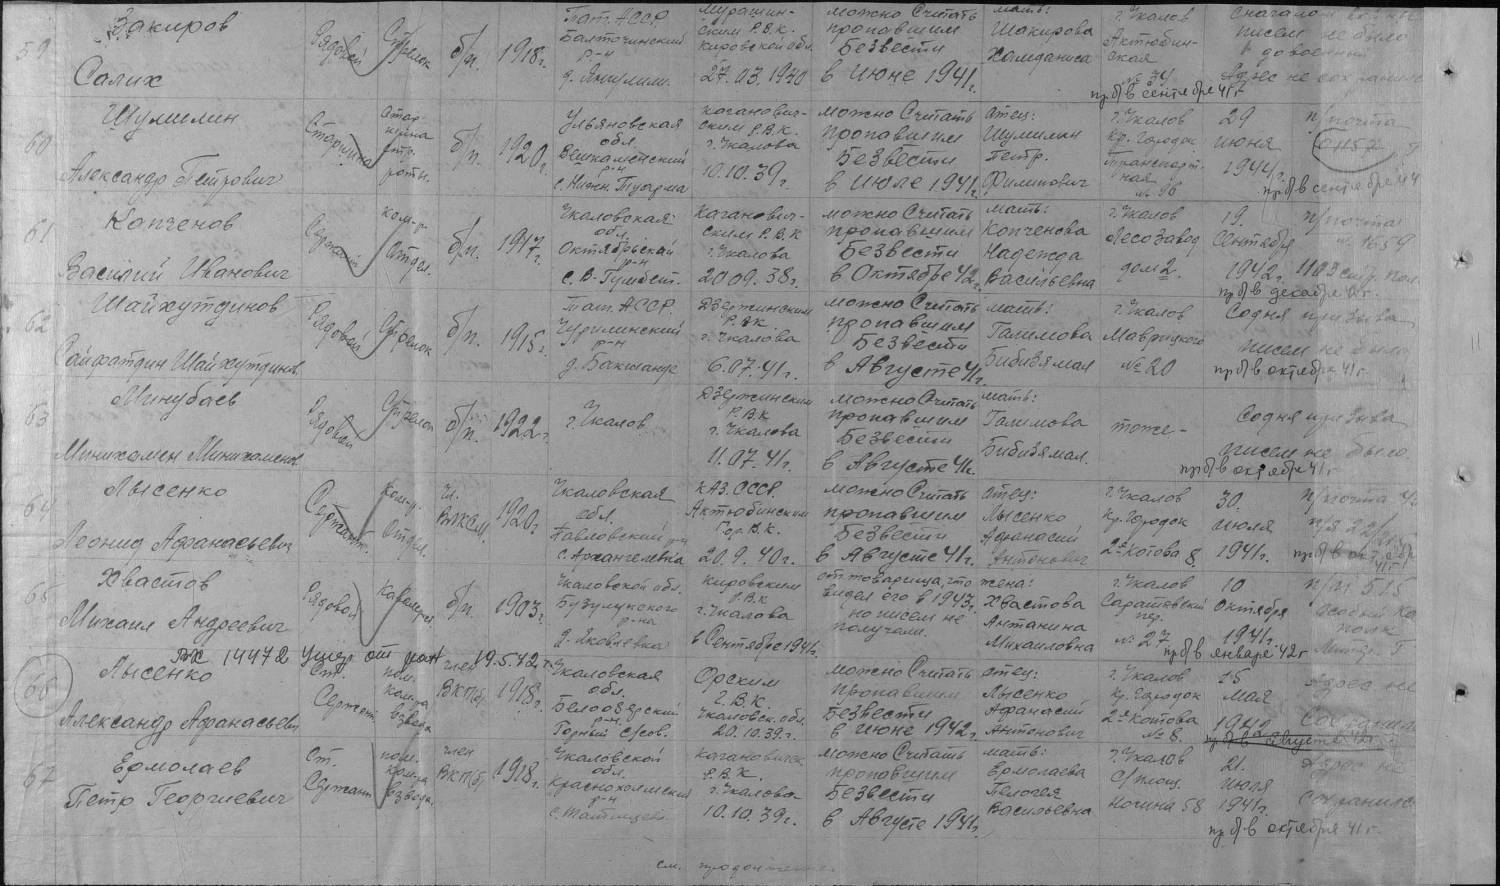 59 Закиров Салих
Рядовой
Стрелок
б/п.
1918г.
Тат. АССР
Балтачинский
р-н
Мурашин-
ским Р.В.К.
Кировской обл.
27.03.1940
можно считать
пропавшим
безвести
в июне 1941г.
мать:
Шакирова
Хамданиса
г. Чкалов
Актюбин-
ская
№ 34
писем не было
Адрес не сохранился
пр б/в сентябре 41г
60 Шумилин
Александр Петрович
Старшина
б/п.
1920г.
Ульяновская
обл.
Вешкаменский
р-н
с. Нижн. Туарма
Каганович-
ским Р.В.К.
г. Чкалова
10.10.39г.
можно считать
пропавшим
безвести
в июле 1941г.
отец:
Шумилин
Петр.
Филипович
г. Чкалов
Кр. Городок
Транспорт-
ная
№ 36
29
июня
1944г.
п/почта
01157
пр б/в сентябре 44
61 Капченов
Василий Иванович
Сержант
ком-р
Отдел.
б/п.
1917г.
Чкаловская
обл.
Октябрьский
р-н
с. В-Гумбет.
Каганович-
ским Р.В.К
г. Чкалова
20.09.38г.
можно считать
пропавшим
безвести
в Октябре 42г
мать:
Копченова
Надежда
Васильевна
г. Чкалов
Лесозавод
дом 2.
19.
Сентября
1942г.
п/почта
№ 1659
1183 стр. пол.
пр б/в декабре 42г.
62 Шайхутдинов
Сайфатдин Шайхутдинов.
Рядовой
Стрелок
б/п.
1915г.
Тат. АССР.
р-н
Дзержинским
Р.В.К
г. Чкалова
6.07.41г.
можно считать
пропавшим
безвести
в Августе 41г.
мать:
Галимова
Бибизямал
г. Чкалов
Маврицкого
№ 20
Со дня призыва
писем не было
пр б/в октябре 41г
63 Минубаев
Рядовой
Стрелок
б/п.
1922г.
г. Чкалов
Дзержинским
Р.В.К
г. Чкалова
11.07.41г.
можно считать
пропавшим
безвести
в Августе 41г.
мать:
Галимова
Бибизямал.
тоже-
Со дня призыва
писем не было
пр б/в октябре 41г
64 Лысенко
Леонид Афанасьевич
Сержант.
Ком-р
Отдел.
чл.
ВЛКСМ.
1920г.
Чкаловская
обл.
Павловский р-н
с. Архангеловка
КАЗ. СССР.
Актюбинским
Гор. В.К.
20.9.40г.
можно считать
пропавшим
безвести
в Августе 41г.
отец:
Лысенко
Афанасий
Антонович
г. Чкалов
Кр. Городок
2я Котова 8.
30.
июля
1941г.
п/почта
пр б/в октябре
41г.
65 Хвастов
Михаил Андреевич
Рядовой
б/п.
1903г.
Чкаловской обл.
Бузулукского
р-на
д. Яковлевка
Кировским
Р.В.К
г. Чкалова
в Сентябре 1941г.
от товарища, что
видел его в 1943г.
но писем не
получали.
жена:
Хвастова
Антанина
Михаиловна
г. Чкалов
Саратовский
пер.
№ 27
10
октября
1941г.
п/п 515
особый
полк
пр б/в январе 42г
вх 14472 Умер от ран 19.5.42г
66 Лысенко
Александр Афанасьевич
Ст.
Сержант
пом.
ком-ра
взвода
член
ВКП(б)
1918г.
Чкаловская
обл.
Белозерский
р-н.
Орским
Г.В.К
Чкаловск. обл.
20.10.39г.
можно считать
пропавшим
безвести
в июне 1942г.
отец:
Лысенко
Афанасий
Антонович
г. Чкалов
Кр. Городок
2я Котова
№ 8.
15
мая
1942
Адрес не
пр б/в августе 42г
67 Ермолаев
Петр Георгиевич
Ст.
Сержант
пом.
ком-ра
взвода.
член
ВКП(б)
1918г.
Чкаловской
обл.
Краснохолмский
р-н
с. Татищево
Кагановичск.
Р.В.К.
г. Чкалова
10.10.39г.
можно считать
пропавшим
безвести
в Августе 1941г.
мать:
Ермолаева
Пелогея
Васильевна
г. Чкалов
с/площ.
Ногина 58
21.
Июля
1941г.
Адрес не
сохранился
пр б/в октябре 41г.
см. продолжение